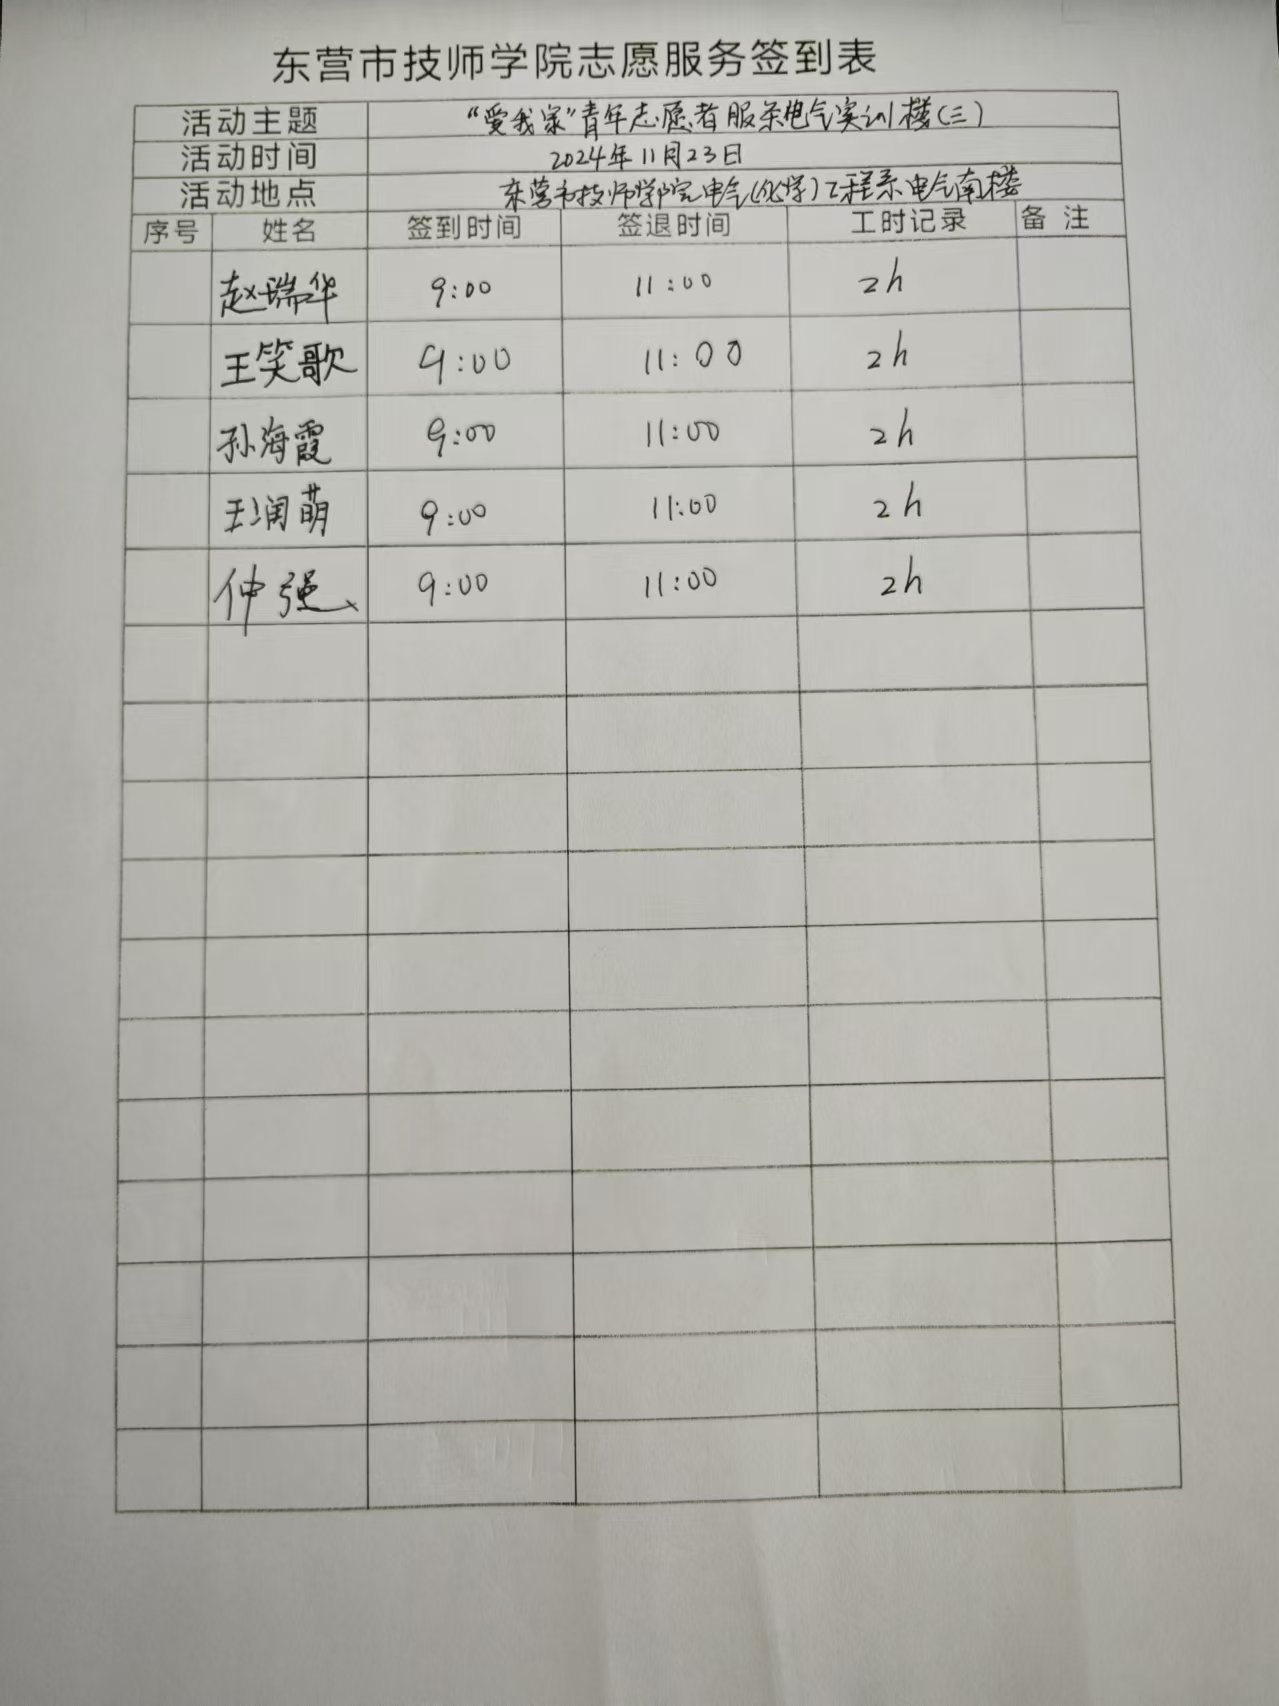 东营市技师学院志愿服务签到表
活动主题 “爱我家”青年志愿者服务电气实训楼(三)
活动时间 2024年11月23日
活动地点 东营市技师学院电气(化学)工程系电气南楼
序号 姓名 签到时间 签退时间 工时记录 备注
赵瑞华 9:00 11:00 2h
王笑歌 9:00 11:00 2h
孙海霞 9:00 11:00 2h
王润萌 9:00 11:00 2h
仲强 9:00 11:00 2h